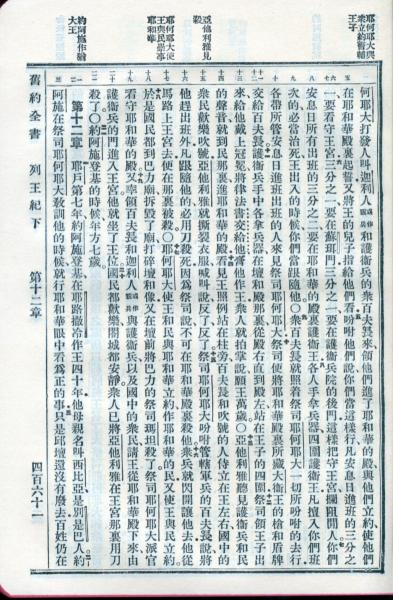 耶何耶大與
衆立約暫輔
王子
亞他利雅見
殺
耶何耶大使
王與民崇事
耶和華
約阿施作猶
大王
何耶大打發人叫迦利人或作親兵和護衛兵的衆百夫長來領他們進了耶和華的殿與他們立約使他們
在耶和華殿裏起誓又將王的兒子指給他們看吩咐他們說你們當這樣行凡安息日進班的三分之
一要看守王宮三分之一要在蘇珥門三分之一要在護衛兵院的後門這樣把守王宮攔阻閒人你們
安息日所有出班的三分之二要在耶和華的殿裏護衛王各人手拿兵器四圍護衛王凡擅入你們班
次的必當治死王出入的時候你們當跟隨他○衆百夫長就照着祭司耶何耶大一切所吩咐的去行
各帶所管安息日進班出班的人來見祭司耶何耶大祭司便將耶和華殿裏所藏大衛王的槍和盾牌
交給百夫長護衛兵手中各拿兵器在壇和殿那裏從殿右直到殿左站在王子的四圍祭司領王子出
來給他戴上冠冕將律法書交給他膏他作王衆人就拍掌說願王萬歲○亞他利雅聽見護衛兵和民
的聲音就到民那裏進耶和華的殿看見王照例站在柱旁百夫長和吹號的人侍立在王左右國中的
衆民歡樂吹號亞他利雅就撕裂衣服喊叫說反了反了祭司耶何耶大吩咐管轄軍兵的百夫長說將
他趕出班外凡跟隨他的必用刀殺死因為祭司說不可在耶和華殿殺他衆兵就閃開讓他去他從
馬路上王宮去便在那裏被殺○耶何耶大使王和民與耶和華立約作耶和華的民又使王與民立約
於是國民都到巴力廟拆毀了廟打碎壇和像又在壇前將巴力的祭司瑪坦殺了祭司耶何耶大派官
看守耶和華的殿又率領百夫長和迦利人或作親兵與護衛兵以及國中的衆民請王從耶和華殿下來由
護衛兵的門進入王宮他就坐了王位國民都歡樂闔城都安靜衆人已將亞他利雅在王宮那裏用刀
殺了○約阿施登基的時候年方七歲
第十二章 耶戶第七年約阿施登基在耶路撒冷作王四十年他母親名叫西比亞是別是巴人約
阿施在祭司耶何耶大教訓他的時候就行耶和華眼中看為正的事只是邱壇還沒有廢去百姓仍在
舊約全書 列王紀下 第十二章 四百六十一